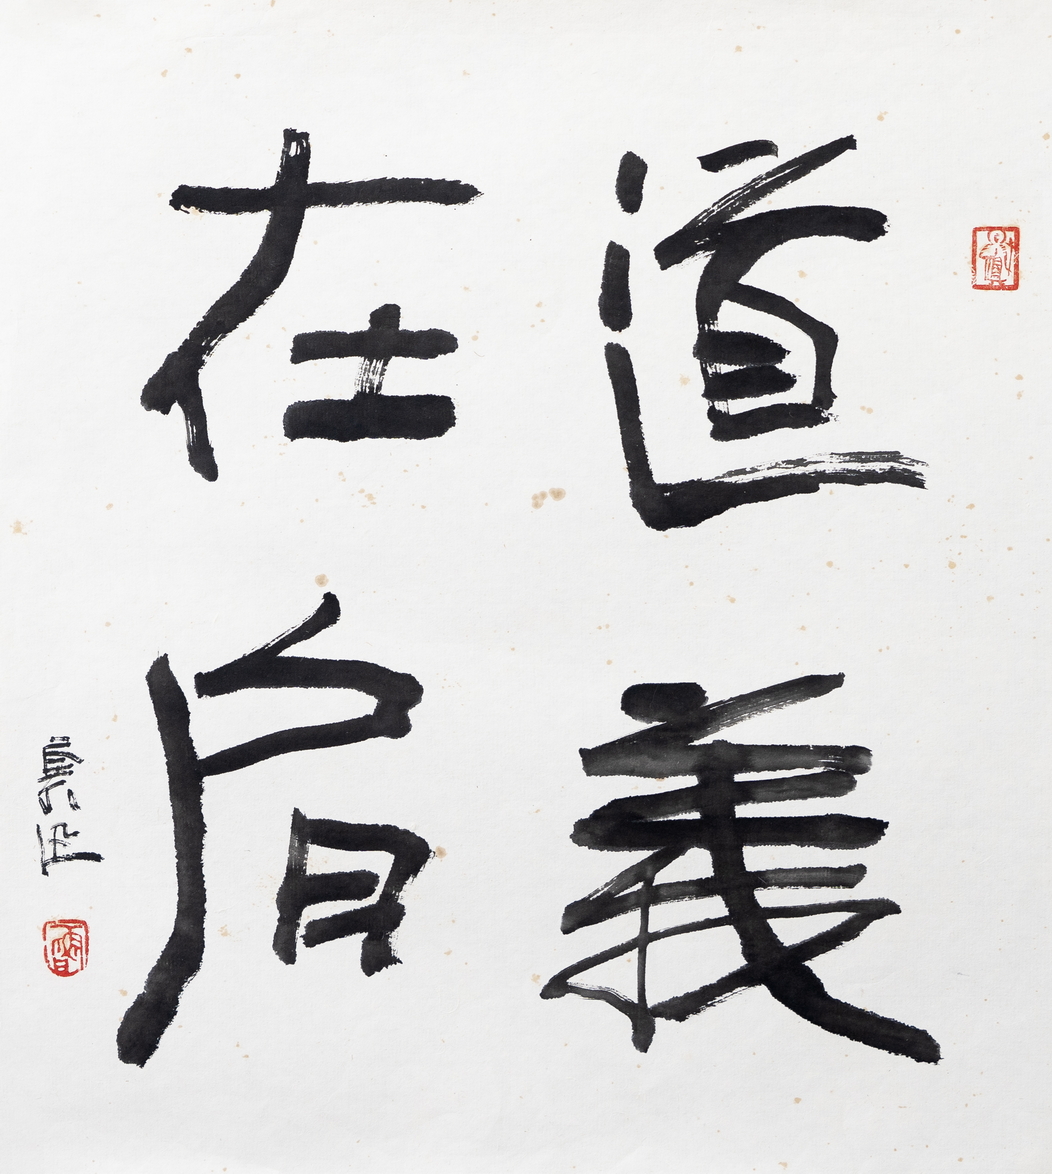 道義
在肩